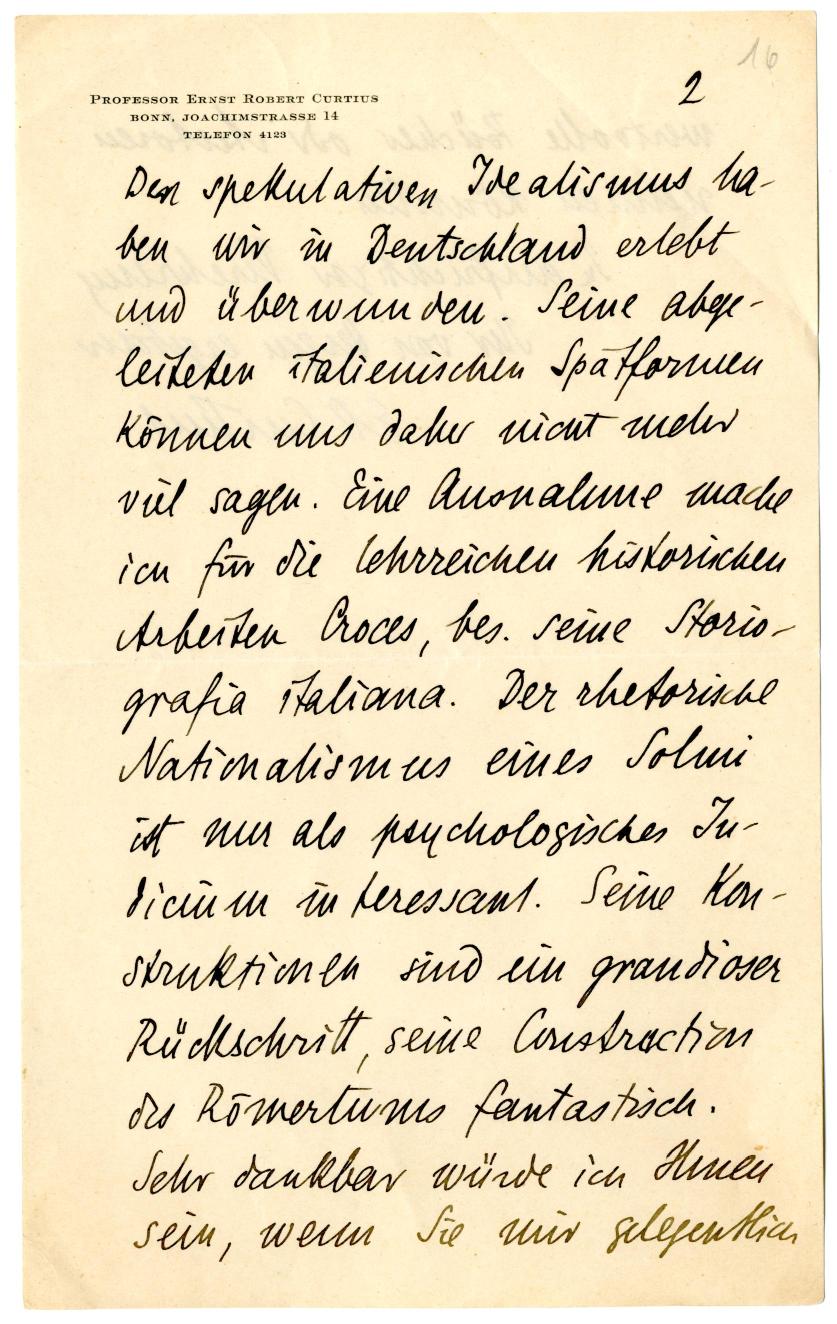 16
2
PROFESSOR ERNST ROBERT CURTIUS
BONN, JOACHIMSTRASSE 14
TELEFON 4123
Den spekulativen Idealismus ha-
ben wir in Deutschland erlebt
und überwunden. Seine abge-
leiteten italienischen Spätformen
können uns daher nicht mehr
viel sagen. Eine Ausnahme mache
ich für die lehrreichen historischen
Arbeiten Croces, bes. seine Storio-
grafia italiana. Der rhetorische
Nationalismus eines Solmi
ist nur als psychologisches In-
dicium interessant. Seine Kon-
struktionen sind ein grandioser
Rückschritt, seine Construction
des Römertums fantastisch.
Sehr dankbar würde ich Ihnen
sein, wenn Sie mir gelegentlich